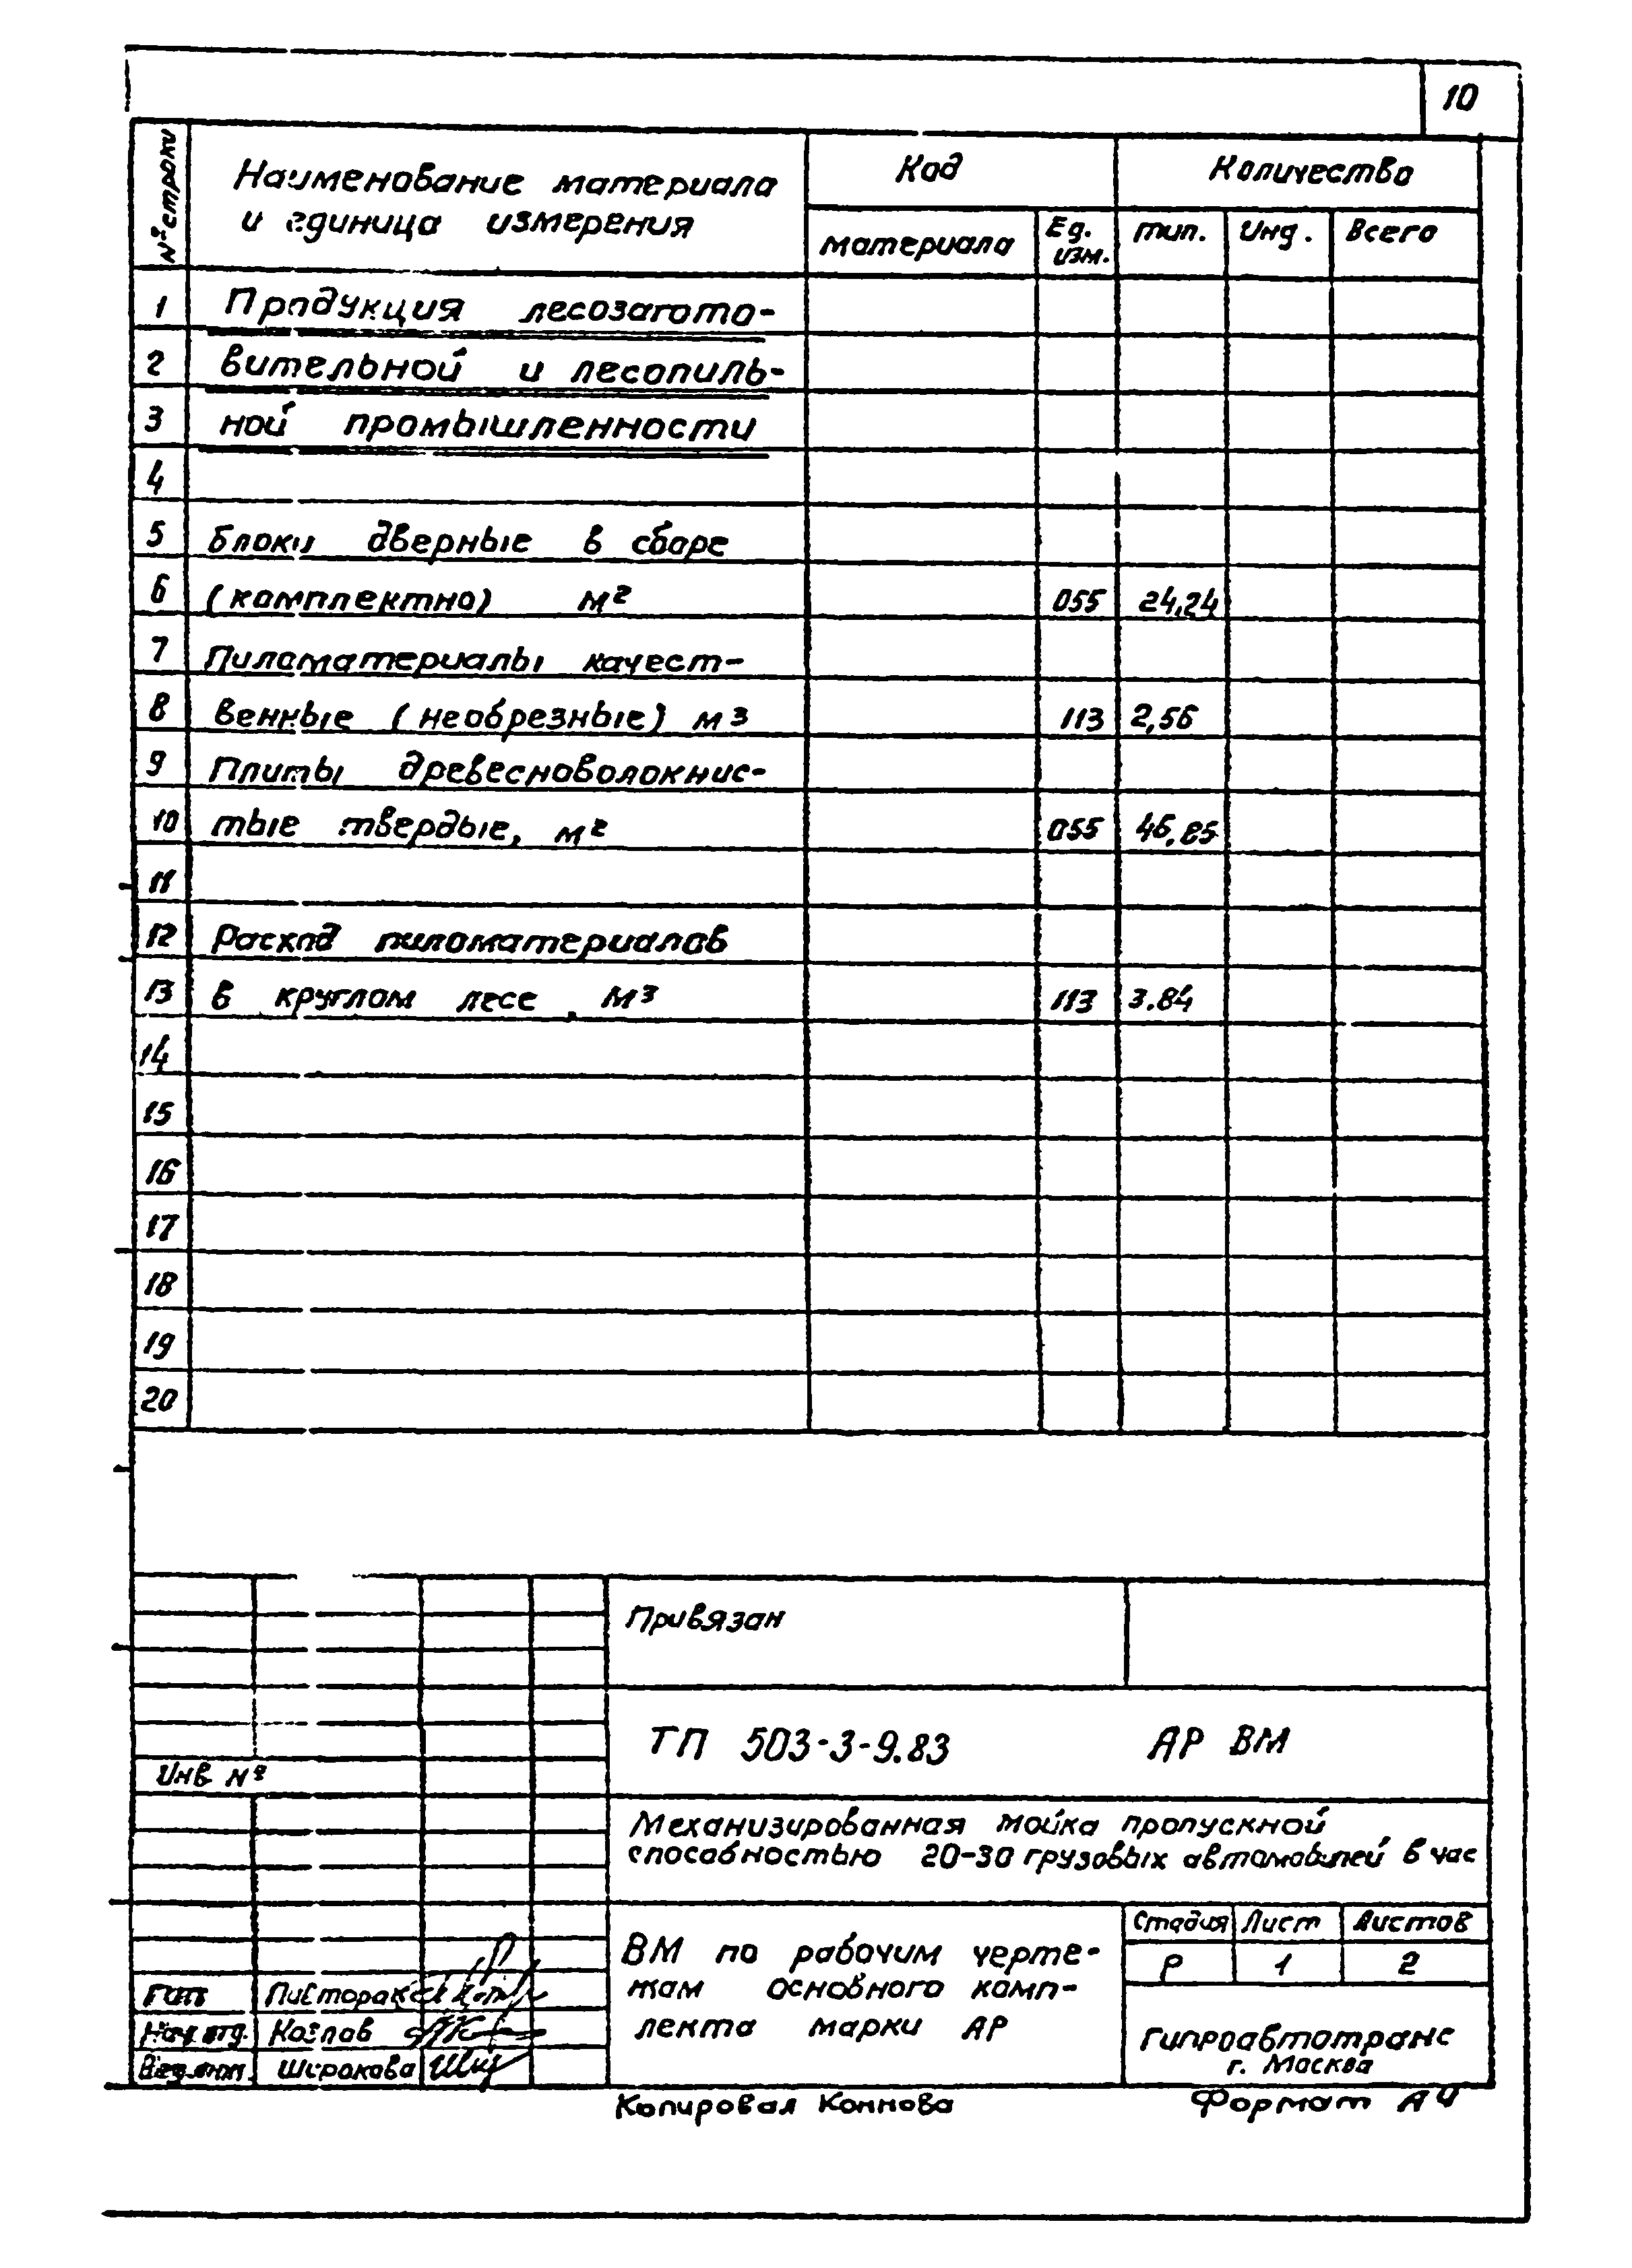 10
№ строки
Наименование материала
и единица измерения
Код
Количество
материала
Ед.
изм.
тип.
Инд.
Всего
1 Продукция лесозагото-
2 вительной и лесопиль-
3 ной промышленности
4
5 Блоки дверные в сборе
6 (комплектно) м² 055 24,24
7 Пиломатериалы качест-
8 венные (необрезные) м³ 113 2,56
9 Плиты древесноволокнис-
10 тые твердые, м² 055 46,85
11
12 Расход пиломатериалов
13 в круглом лесе, м³ 113 3.84
14
15
16
17
18
19
20
Привязан
ТП 503-3-9.83 АР ВМ
Инв №
Механизированная мойка пропускной
способностью 20-30 грузовых автомобилей в час
ВМ по рабочим черте-
жам основного комп-
лекта марки АР
Стадия Лист Листов
Р 1 2
Гип
Нач. отд. Козлов
Вед. инп. Широкова
Гипроавтотранс
г. Москва
Копировал Коннова Формат А4